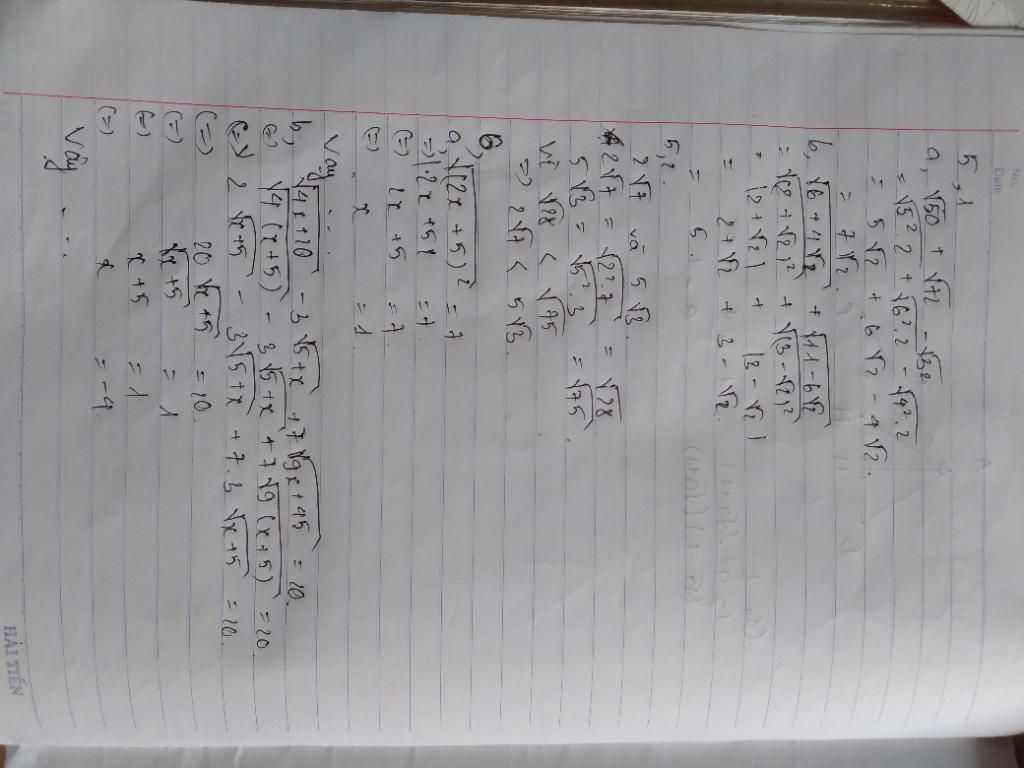 No.
Date
5,1
a, √50 + √72 - √32
= √5².2 + √6².2 - √4².2
= 5√2 + 6√2 - 4√2.
= 7√2.
b, √6+4√2 + √11-6√2
= √(2+√2)² + √(3-√2)²
= |2+√2| + |3-√2|
= 2+√2 + 3-√2.
= 5.
5,2.
2√7 và 5√3.
2√7 = √2².7 = √28
5√3 = √5².3 = √75.
Vì √28 < √75
=> 2√7 < 5√3.
6,
a, √(2x+5)² = 7
=> |2x+5| = 7
(=) 2x+5 = 7.
(=) x = 1.
Vậy ...
b, √4x+20 - 3√5+x + 7√9x+45 = 20.
(=) √4(x+5) - 3√5+x + 7√9(x+5) = 20
(=) 2√x+5 - 3√5+x + 7.3√x+5 = 20.
(=) 20√x+5 = 20.
(=) √x+5 = 1
(=) x+5 = 1
(=) x = -4
Vậy ...
HẢI TIẾN